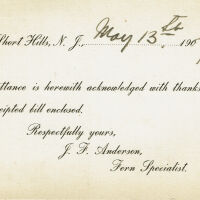 Short Hills, N. J., May 13th, 190
ttance is herewith acknowledged with thanks
eipted bill enclosed.
Respectfully yours,
J. F. Anderson,
Fern Specialist.